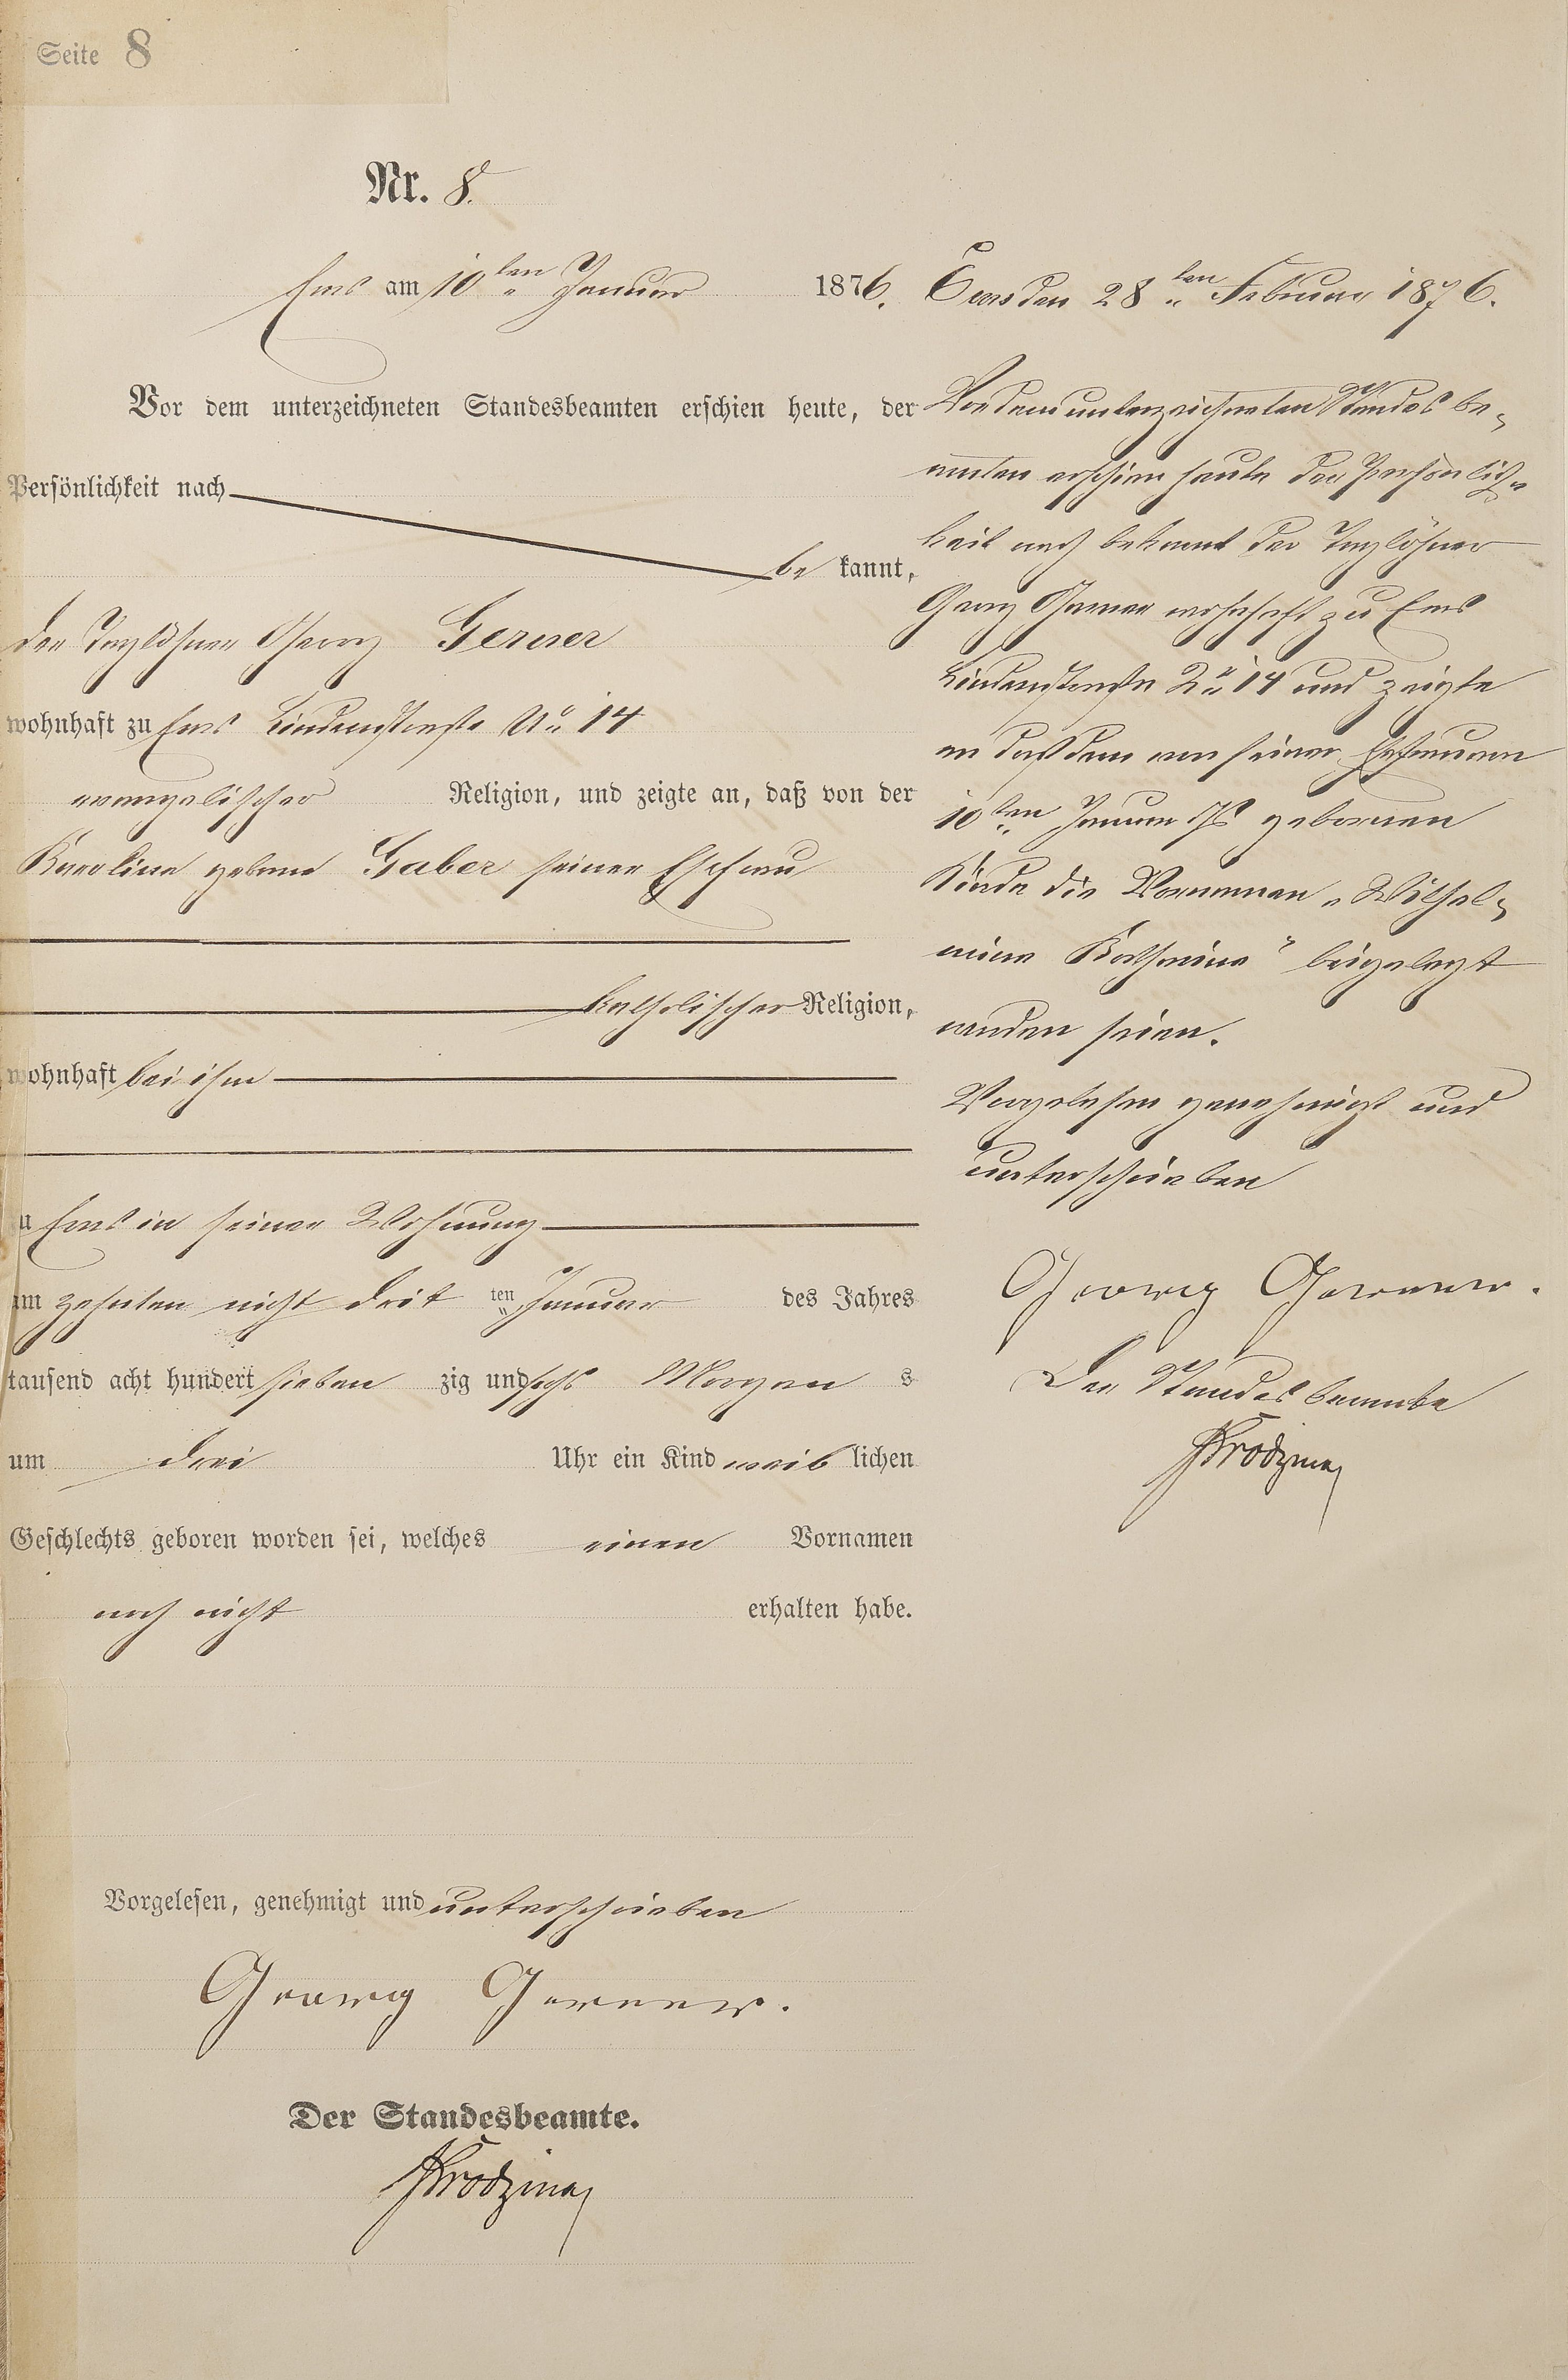 Seite 8
Nr. 8.
Ems am 10ten Januar 1876.
Vor dem unterzeichneten Standesbeamten erschien heute, der
Persönlichkeit nach
be kannt,
der Taglöhner Georg Gerner
wohnhaft zu Ems Lindenstraße No 14
evangelischer Religion, und zeigte an, daß von der
Karoline geborne Gaber seiner Ehefrau
katholischer Religion,
wohnhaft bei ihm
zu Ems in seiner Wohnung
am zehnten nicht drit ten Januar des Jahres
tausend acht hundert sieben zig und sechs Morgen s
um drei Uhr ein Kind weib lichen
Geschlechts geboren worden sei, welches einen Vornamen
noch nicht erhalten habe.
Vorgelesen, genehmigt und unterschrieben
Georg Gerner.
Der Standesbeamte.
Ems den 28ten Februar 1876.
Vor dem unterzeichneten Standesbe-
amten erschien heute der Persönlich-
keit nach bekannt der Taglöhner
Georg Gerner wohnhaft zu Ems
Lindenstraße No 14 und zeigte
an daß dem von seiner Ehefrau am
10ten Januar Js geborenen
Kinde die Vornamen „Wilhel-
mine Katharine“ beigelegt
worden seien.
Vorgelesen genehmigt und
unterschrieben
Georg Gerner.
Der Standesbeamte